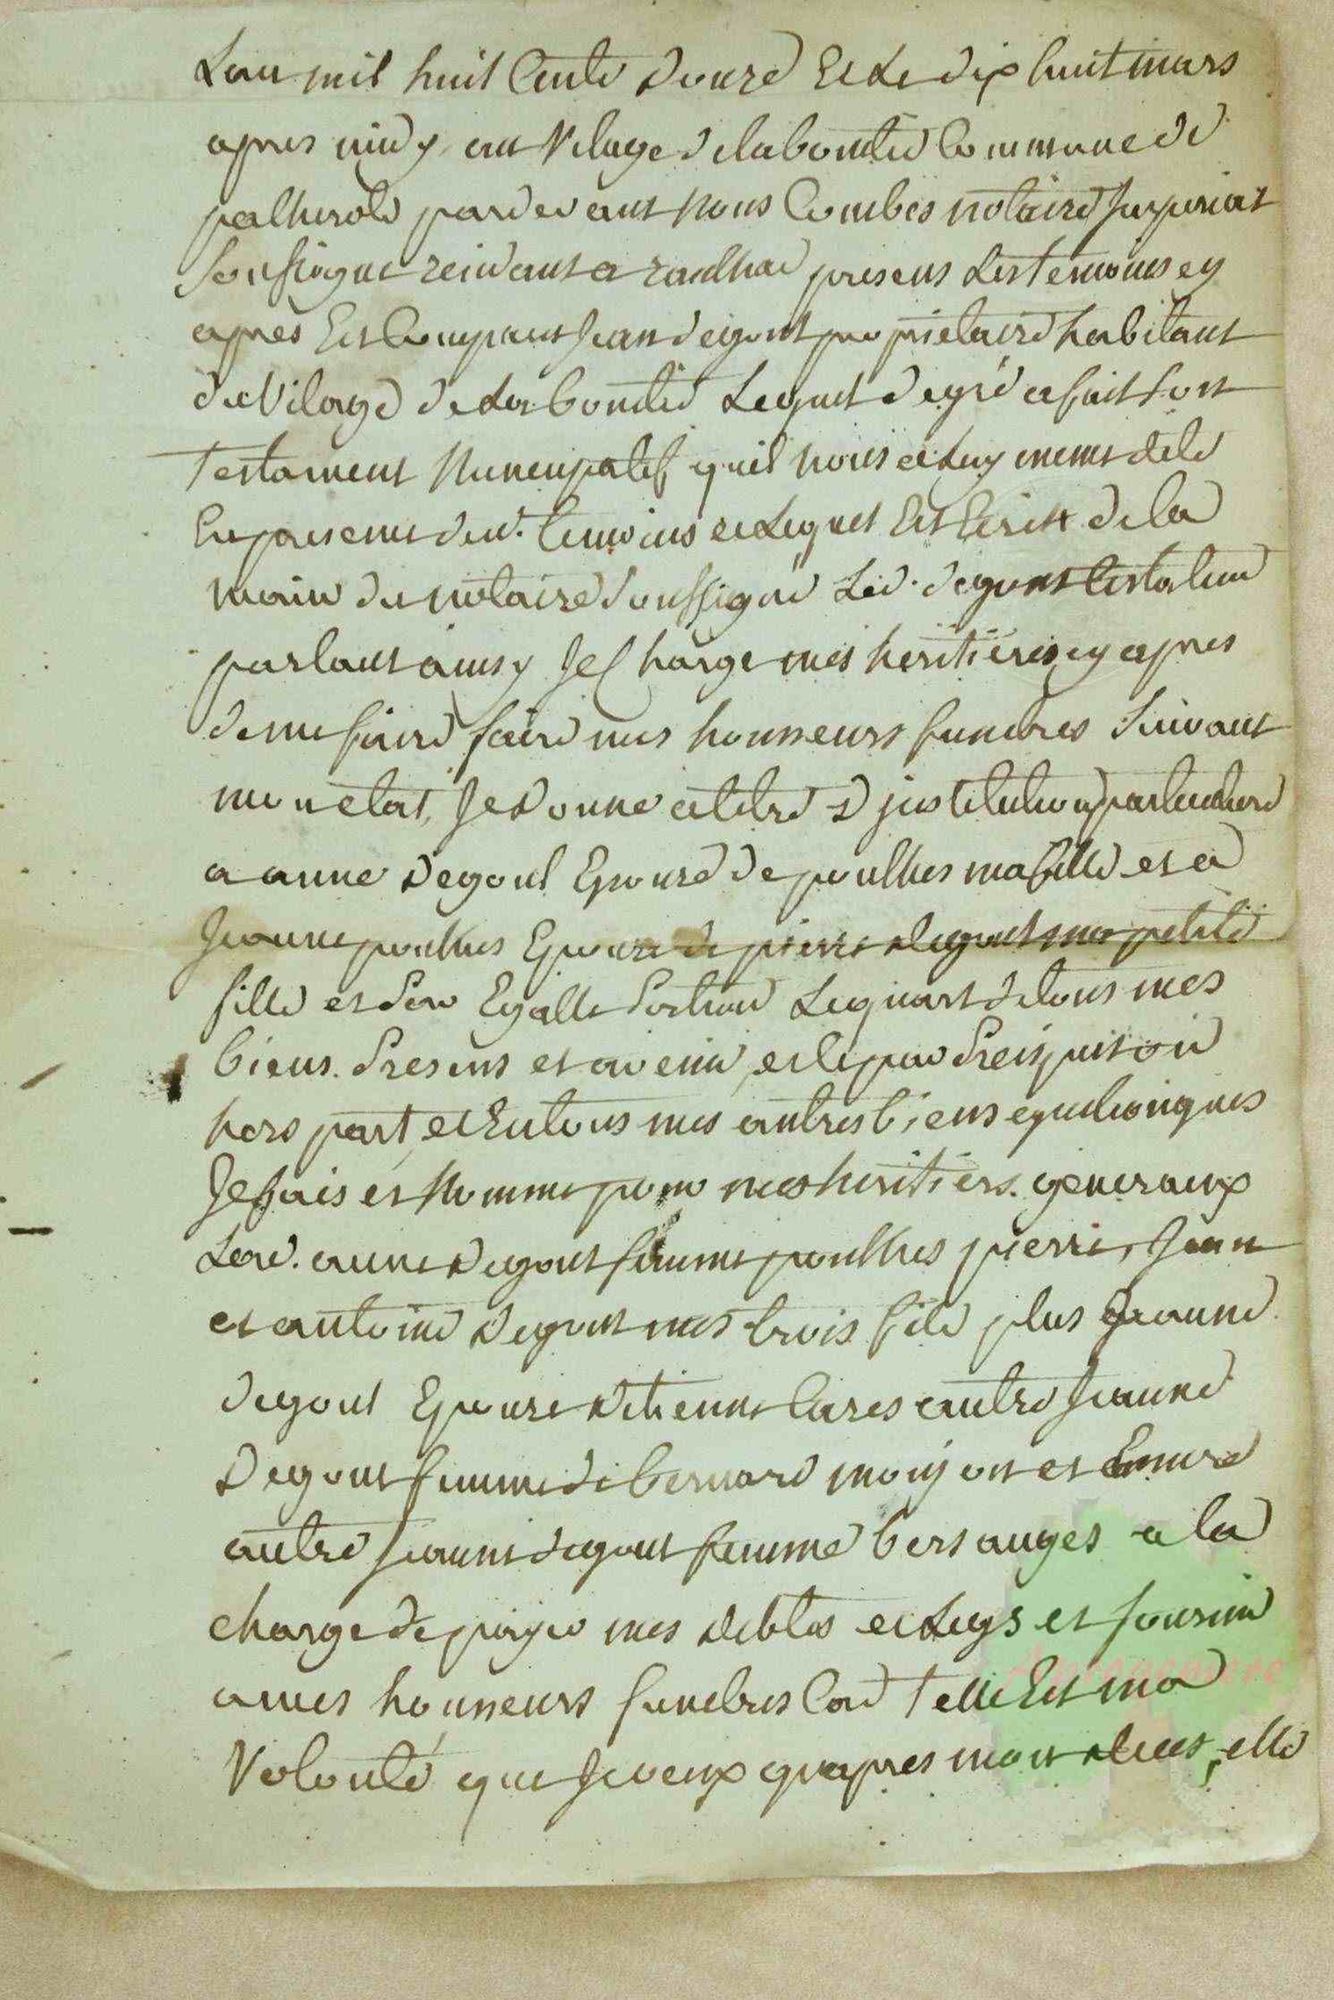 Lan mil huit Cents Douze Et Le dix huit mars
apres midy au Vilage de labontie Commune de
palherols pardevant nous Combes notaire Imperial
soussigne residant a raulhac presens Les temoins cy
apres Est Comparu Jean degoul proprietaire habitant
du Vilage de La bontie Lequel de gré a fait son
testament Nuncupatif quil nous a Luy meme dicté
En presence desd. temoins et Lequel Est Ecrit de la
main du notaire soussigné Led. degoul testateur
parlant ainsy Je Charge mes heritiers cy apres
de me faire faire mes honneurs funebres suivant
mon etat, Je Donne a titre D institution particuliere
a anne Degoul Epouse de poulhes ma fille et a
Jeanne poulhes Epouse de pierre degoul ma petite
fille et par Egalle Portion Le quart de tous mes
biens Presens et avenir, et ce par Preciput et
hors part, et En tous mes autres biens quelconques
Je fais et Nomme pour mes heritiers generaux
Lad. anne Degoul femme poulhes pierre, Jean
et antoine Degoul mes trois fils plus Jeanne
degoul Epouse d'etienne Cares autre Jeanne
Degoul femme de bernard et Encore
autre Jeanne degoul femme bersanges a la
charge de payer mes debtes et Legs et fournir
a mes honneurs funebres Car telle Est ma
Volonté que Je veux qu'apres mon deces, elle